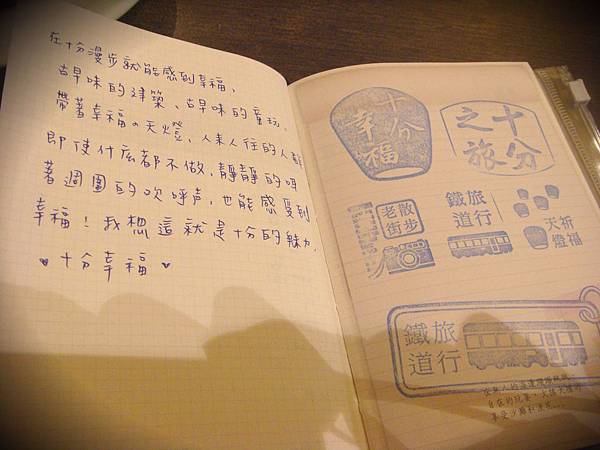 在十分漫步就能感到幸福、
古早味的建築、古早味的童玩、
帶著幸福の天燈、人來人往的人
即使什麼都不做，靜靜的
著週圍的欢呼声，也能感受到
幸福！我想這就是十分的魅力.
♥ 十分幸福 ♥
十分
幸福
十分
之旅
老街
散步
鐵道
旅行
天燈
祈福
鐵道
旅行